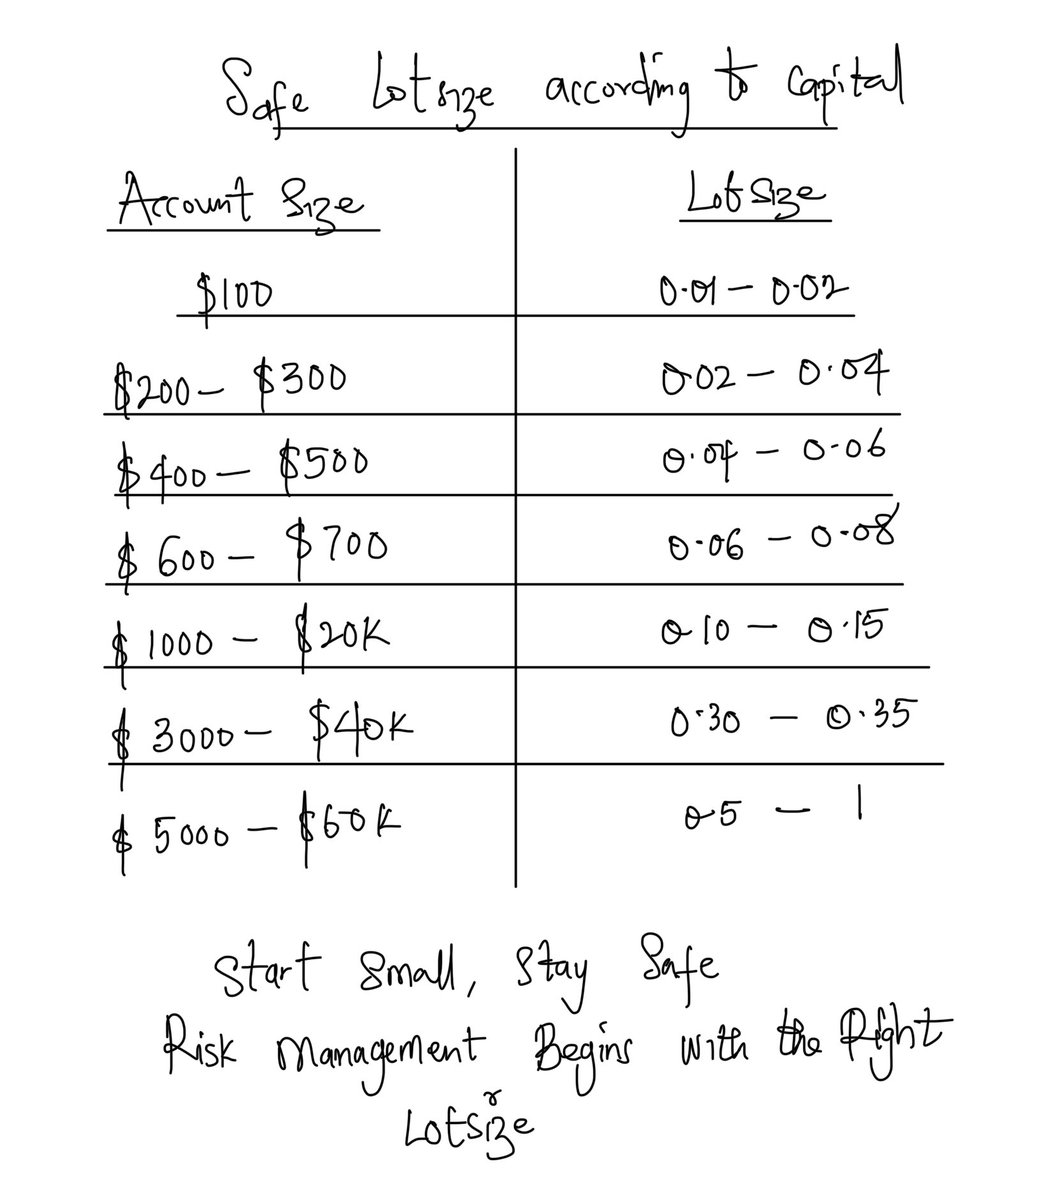 Safe Lotsize according to Capital
Account Size Lotsize
$100 0.01 - 0.02
$200 - $300 0.02 - 0.04
$400 - $500 0.04 - 0.06
$600 - $700 0.06 - 0.08
$1000 - $20K 0.10 - 0.15
$3000 - $40K 0.30 - 0.35
$5000 - $60K 0.5 - 1
Start Small, Stay Safe
Risk Management Begins with the Right
Lotsize